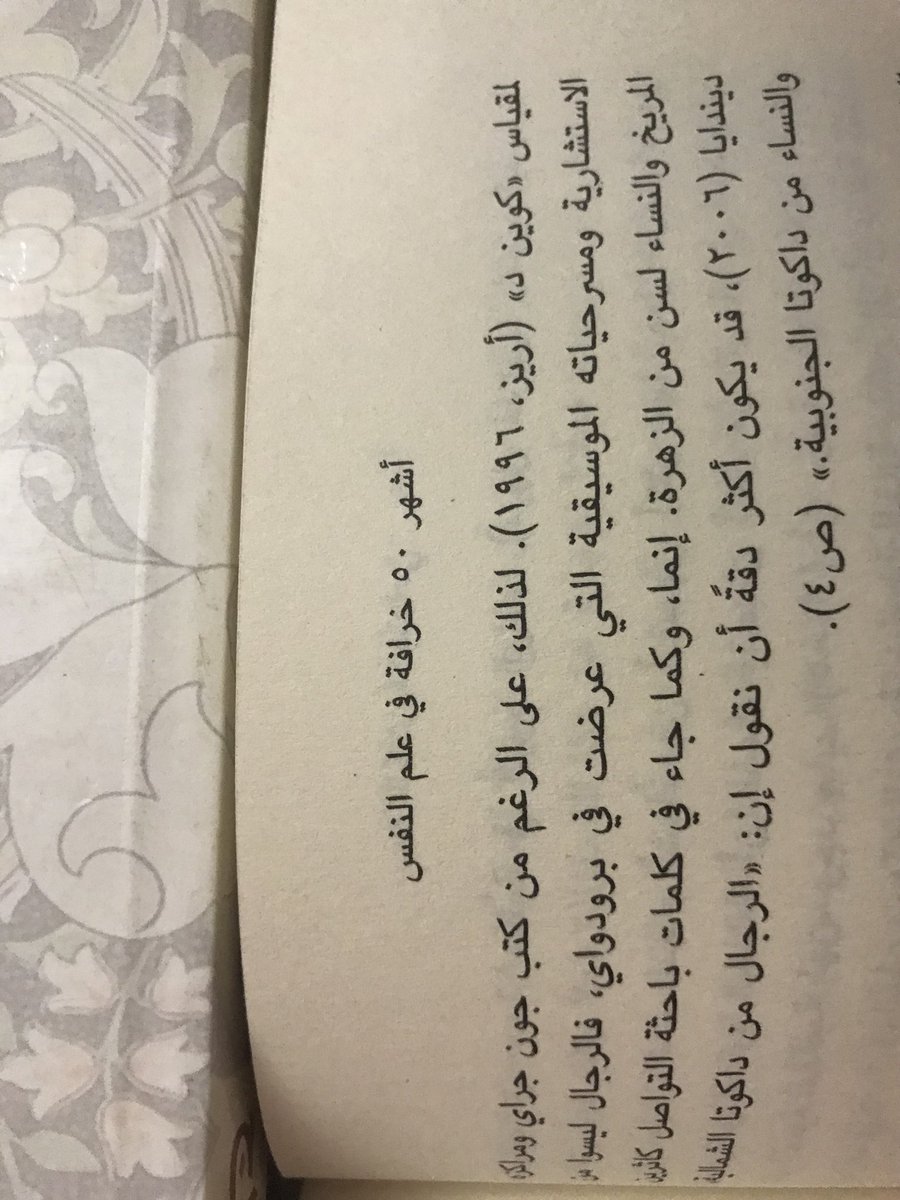 أشهر ٥٠ خرافة في علم النفس
لمقياس «كوين د» (أريز، ١٩٩٦). لذلك، على الرغم من كتب جون جراي ومراكزه
الاستشارية ومسرحياته الموسيقية التي عرضت في برودواي، فالرجال ليسوا من
المريخ والنساء لسن من الزهرة. إنما، وكما جاء في كلمات باحثة التواصل كاثرين
ديندايا (٢٠٠٦)، قد يكون أكثر دقةً أن نقول إن: «الرجال من داكوتا الشمالية
والنساء من داكوتا الجنوبية.» (ص٤).